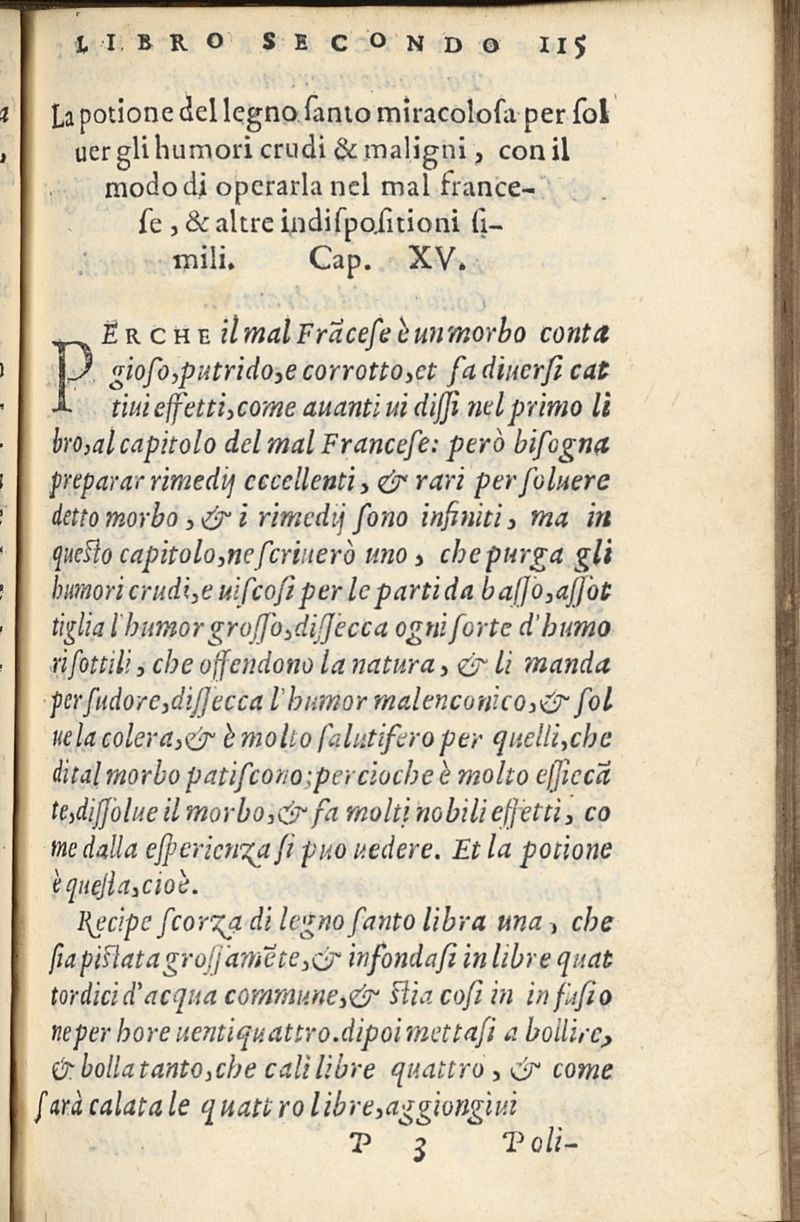 LIBRO SECONDO 115
La potione del legno santo miracolosa per sol
uer gli humori crudi & maligni, con il
modo di operarla nel mal france-
se, & altre indispositioni si-
mili. Cap. XV.
PERCHE il mal Frãcese è un morbo conta
gioso, putrido, e corrotto, et fa diuersi cat
tiui effetti, come auanti ui dissi nel primo li
bro, al capitolo del mal Francese: però bisogna
preparar rimedij eccellenti, & rari per soluere
detto morbo, & i rimedij sono infiniti, ma in
questo capitolo, ne scriuerò uno, che purga gli
humori crudi, e uiscosi per le parti da basso, assot
tiglia l'humor grosso, dissecca ogni sorte d'humo
ri sottili, che offendono la natura, & li manda
per sudore, dissecca l'humor malenconico, & sol
ue la colera, & è molto salutifero per quelli, che
di tal morbo patiscono; percioche è molto essiccã
te, dissolue il morbo, & fa molti nobili effetti, co
me dalla esperienza si puo uedere. Et la potione
è questa, cioè.
Recipe scorza di legno santo libra una, che
sia pistata grossamẽte, & infondasi in libre quat
tordici d'acqua commune, & stia cosi in infusio
ne per hore uentiquattro. dipoi mettasi a bollire,
& bolla tanto, che cali libre quattro, & come
sarà calata le quattro libre, aggiongiui
P 3 Poli-